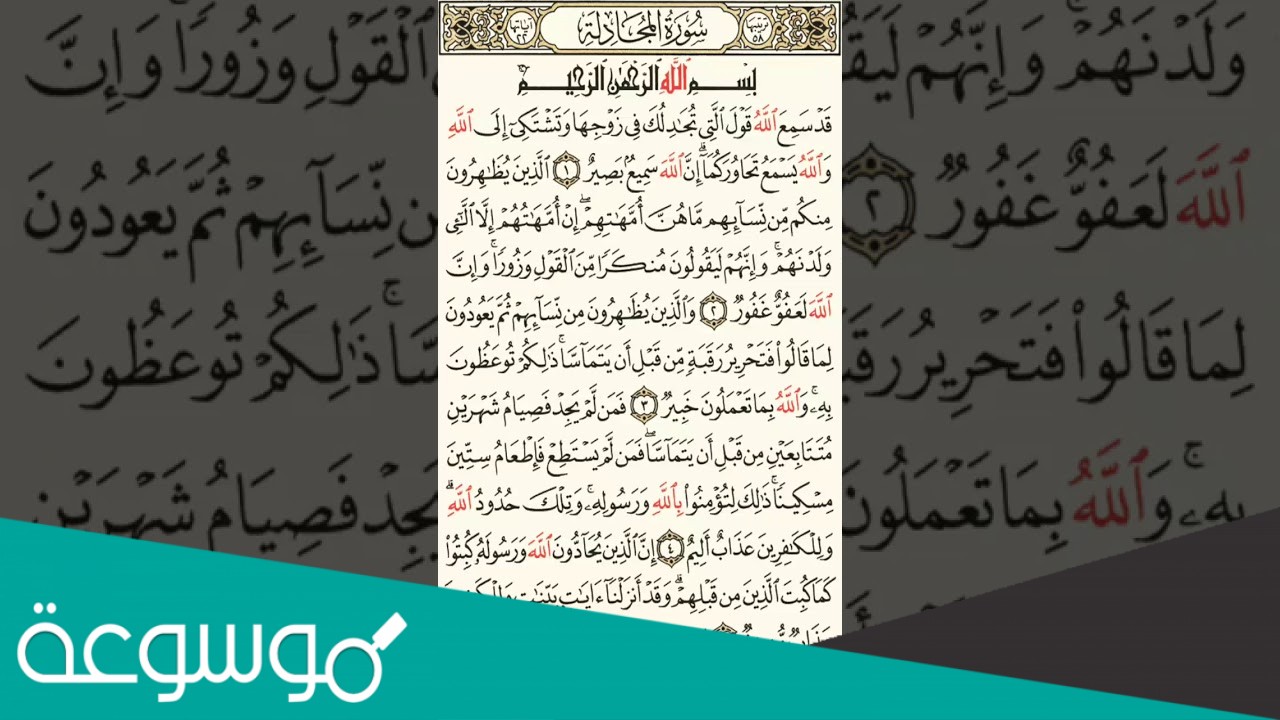 ترتيبها ٥٨
سُورَةُ المُجَادلة
آياتها ٢٢
بِسْمِ ٱللَّهِ ٱلرَّحْمَٰنِ ٱلرَّحِيمِ
قَدْ سَمِعَ ٱللَّهُ قَوْلَ ٱلَّتِي تُجَٰدِلُكَ فِي زَوْجِهَا وَتَشْتَكِيٓ إِلَى ٱللَّهِ
وَٱللَّهُ يَسْمَعُ تَحَاوُرَكُمَآۚ إِنَّ ٱللَّهَ سَمِيعُۢ بَصِيرٌ ١ ٱلَّذِينَ يُظَٰهِرُونَ
مِنكُم مِّن نِّسَآئِهِم مَّا هُنَّ أُمَّهَٰتِهِمْۖ إِنْ أُمَّهَٰتُهُمْ إِلَّا ٱلَّٰٓـِٔي
وَلَدْنَهُمْۚ وَإِنَّهُمْ لَيَقُولُونَ مُنكَرًا مِّنَ ٱلْقَوْلِ وَزُورًاۚ وَإِنَّ
ٱللَّهَ لَعَفُوٌّ غَفُورٌ ٢ وَٱلَّذِينَ يُظَٰهِرُونَ مِن نِّسَآئِهِمْ ثُمَّ يَعُودُونَ
لِمَا قَالُواْ فَتَحْرِيرُ رَقَبَةٍ مِّن قَبْلِ أَن يَتَمَآسَّاۚ ذَٰلِكُمْ تُوعَظُونَ
بِهِۦۚ وَٱللَّهُ بِمَا تَعْمَلُونَ خَبِيرٌ ٣ فَمَن لَّمْ يَجِدْ فَصِيَامُ شَهْرَيْنِ
مُتَتَابِعَيْنِ مِن قَبْلِ أَن يَتَمَآسَّاۖ فَمَن لَّمْ يَسْتَطِعْ فَإِطْعَامُ سِتِّينَ
مِسْكِينًاۚ ذَٰلِكَ لِتُؤْمِنُواْ بِٱللَّهِ وَرَسُولِهِۦۚ وَتِلْكَ حُدُودُ ٱللَّهِۗ
وَلِلْكَٰفِرِينَ عَذَابٌ أَلِيمٌ ٤ إِنَّ ٱلَّذِينَ يُحَآدُّونَ ٱللَّهَ وَرَسُولَهُۥ كُبِتُواْ
كَمَا كُبِتَ ٱلَّذِينَ مِن قَبْلِهِمْۚ وَقَدْ أَنزَلْنَآ ءَايَٰتِۭ بَيِّنَٰتٍۚ
موسوعة